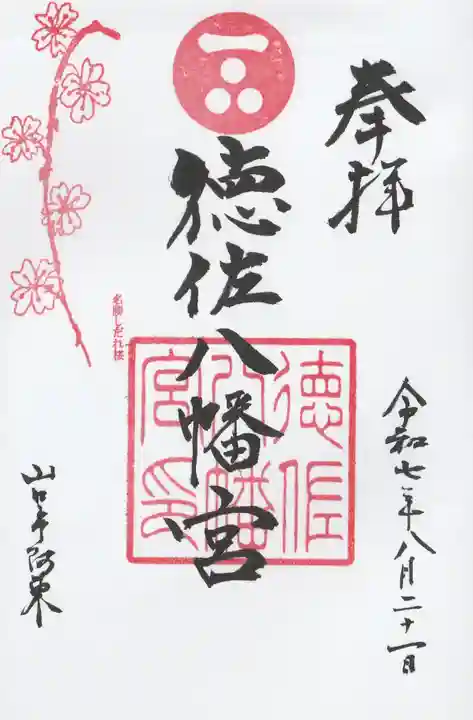 奉拝
徳佐八幡宮
徳佐
八幡
宮印
名勝しだれ桜
令和七年八月二十一日
山口市阿東